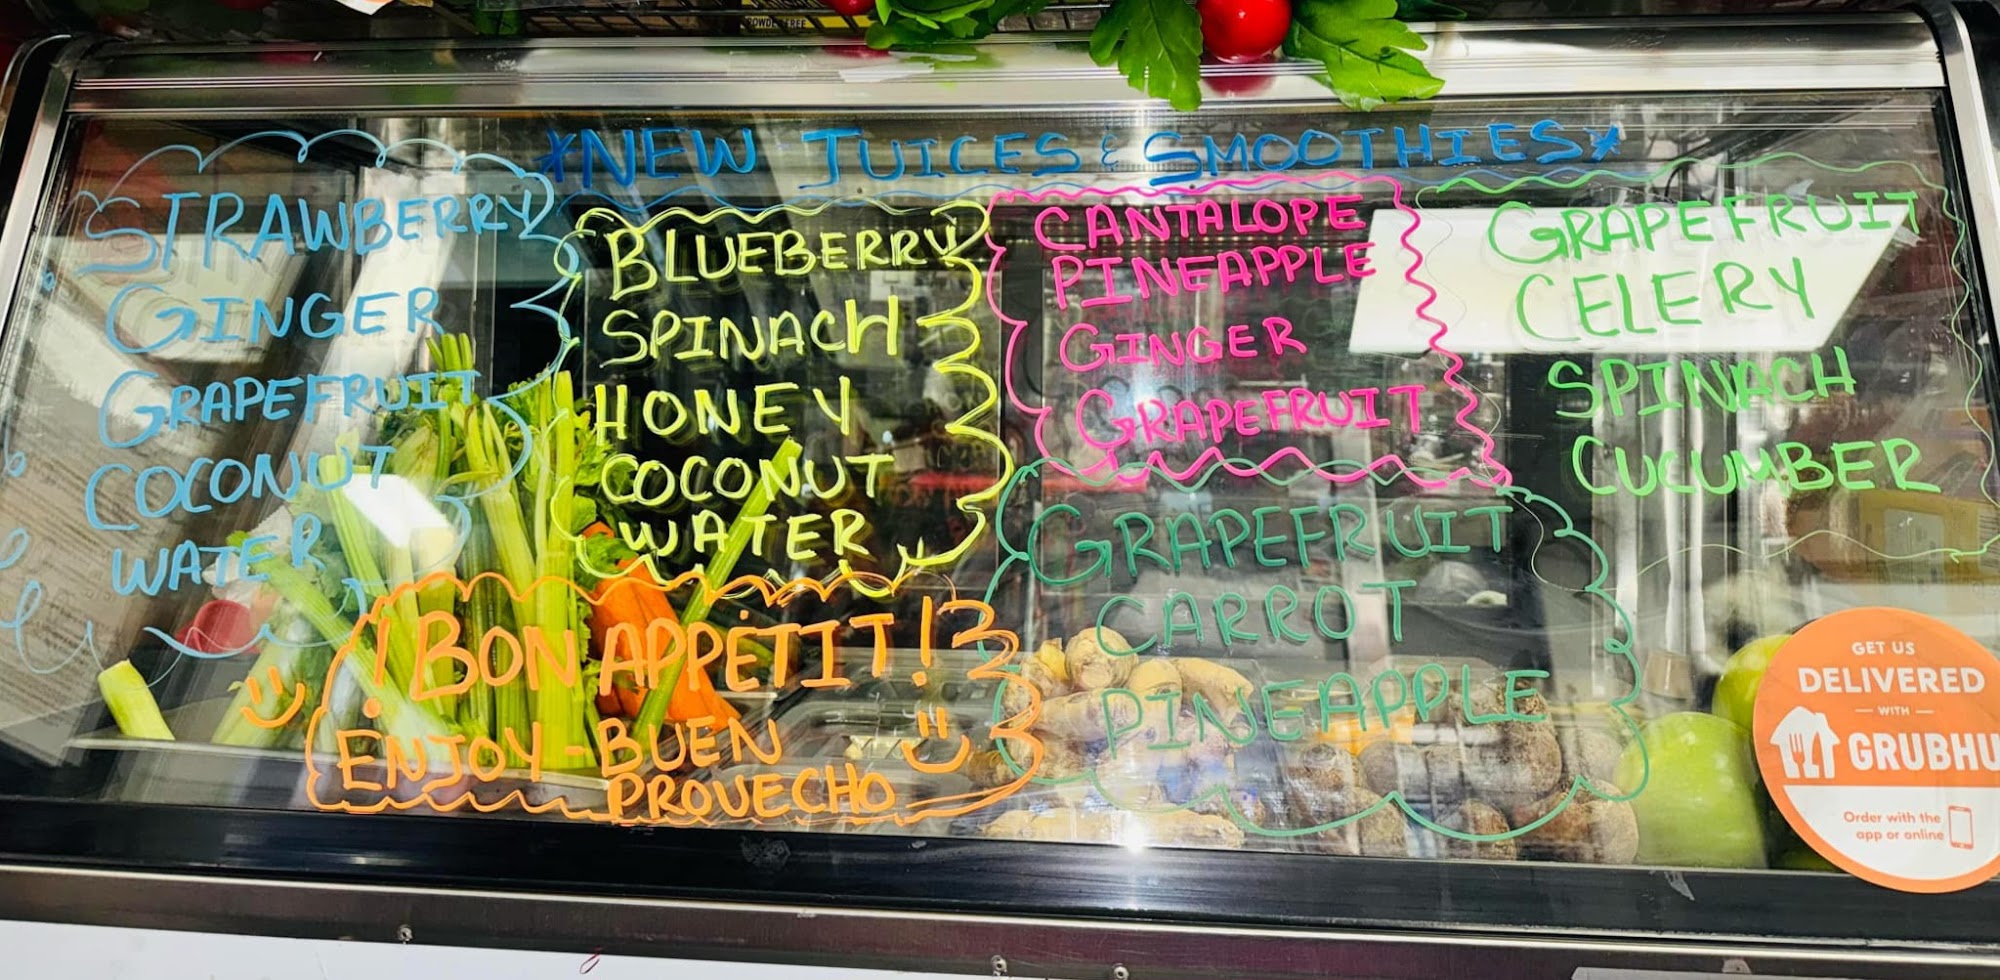 POWDER FREE
*NEW JUICES & SMOOTHIES*
STRAWBERRY
GINGER
GRAPEFRUIT
COCONUT
WATER
BLUEBERRY
SPINACH
HONEY
COCONUT
WATER
CANTALOPE
PINEAPPLE
GINGER
GRAPEFRUIT
GRAPEFRUIT
CELERY
SPINACH
CUCUMBER
GRAPEFRUIT
CARROT
PINEAPPLE
¡BON APPÉTIT!
ENJOY - BUEN
PROVECHO
GET US
DELIVERED
— WITH —
GRUBHU
Order with the
app or online